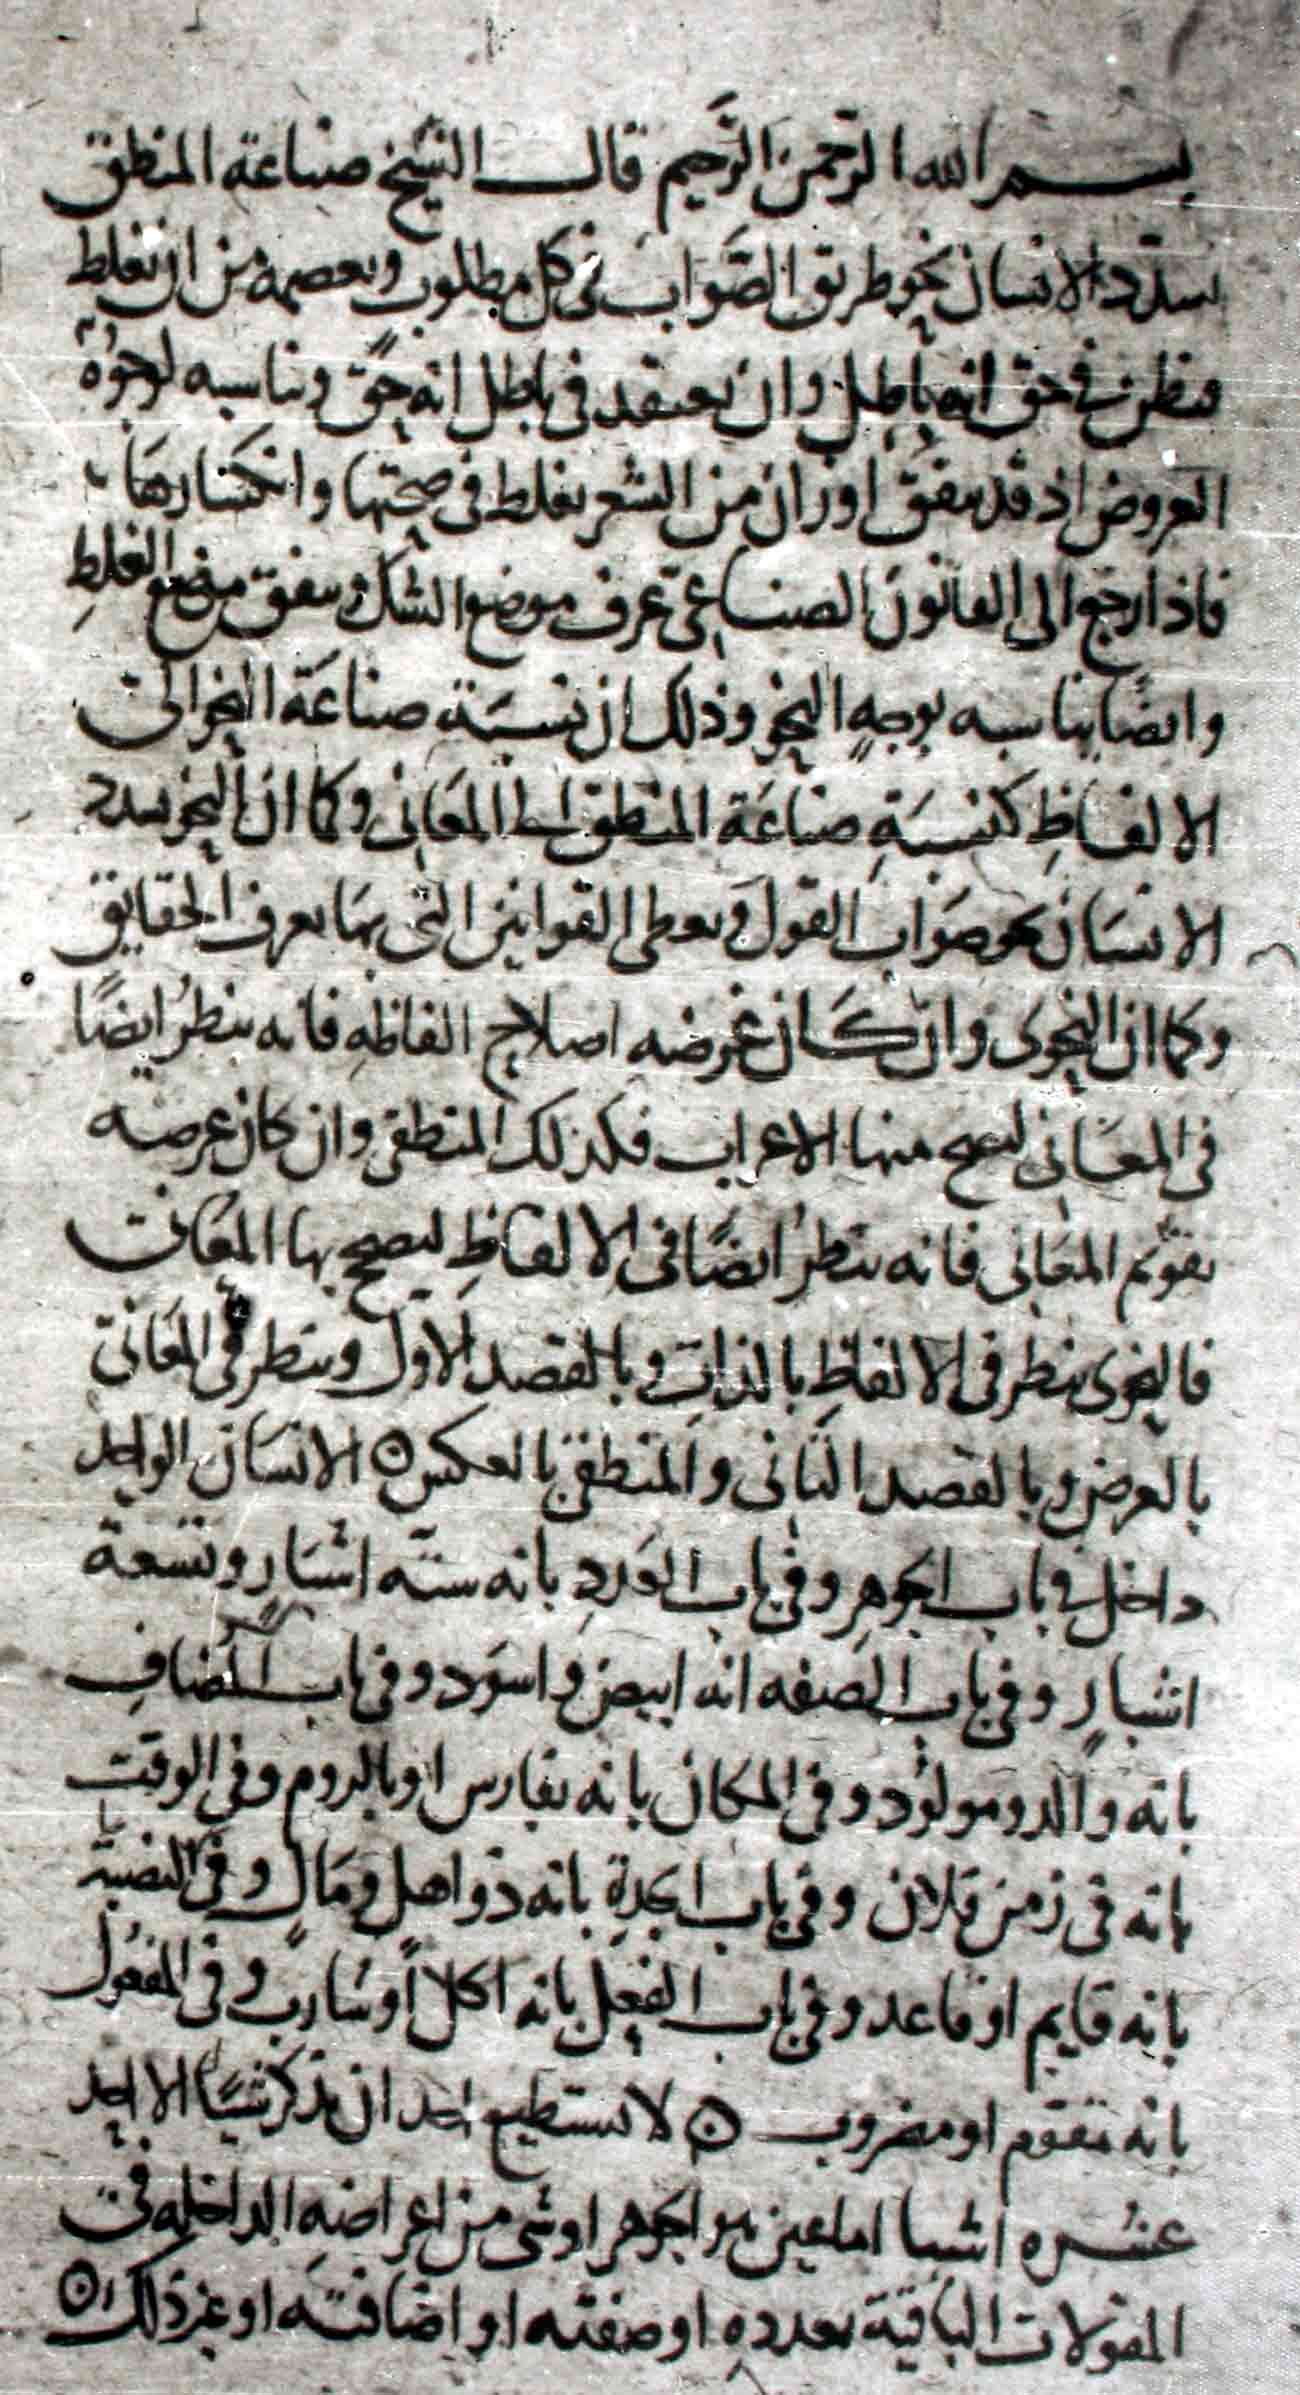 بسم الله الرحمن الرحيم قال الشيخ صناعة المنطق
تسدد الانسان نحو طريق الصواب فى كل مطلوب وتعصمه من ان يغلط
فيظن فى حق انه باطل وان يعتقد فى باطل انه حق ويناسبه لوجوه
العروض اذ قد يتفق اوزان من الشعر يغلط فى صحتها وانكسارها
فاذا رجع الى القانون الصناعى عرف موضع الشك ويتفق موضع الغلط
وايضا يناسبه بوجه النحو وذلك ان نسبة صناعة النحو الى
الالفاظ كنسبة صناعة المنطق الى المعانى وكما ان النحو يسدد
الانسان نحو صواب القول ويعطى القوانين التى بها يعرف الحقايق
وكما ان النحوى وان كان غرضه اصلاح الفاظه فانه ينظر ايضًا
فى المعانى ليصح منها الاعراب فكذلك المنطقى وان كان غرضه
تقويم المعانى فانه ينظر ايضًا فى الالفاظ ليصح بها المعانى
فالنحوى ينظر فى الالفاظ بالذات وبالقصد الاول وينظر فى المعانى
بالعرض وبالقصد الثانى والمنطقى بالعكس ه الانسان الواحد
داخل فى باب الجوهر وفى باب العدد بانه ستة اشبار وتسعة
اشبار وفى باب الصفه انه ابيض واسود وفى باب المضاف
بانه والد ومولود وفى المكان بانه بفارس او بالروم وفى الوقت
بانه فى زمن فلان وفى باب الجدة بانه ذو اهل ومال وفى النصبة
بانه قايم او قاعد وفى باب الفعل بانه اكلا او شارب وفى المفعول
بانه مقوم او مضروب ه لا يستطيع احد ان يذكر شيًا الا احد
عشره اشيا اما عين هو الجوهر او شى من اعراضه الداخله فى
المقولات الباقية بعدده او صفته او اضافته او غير ذلك ه